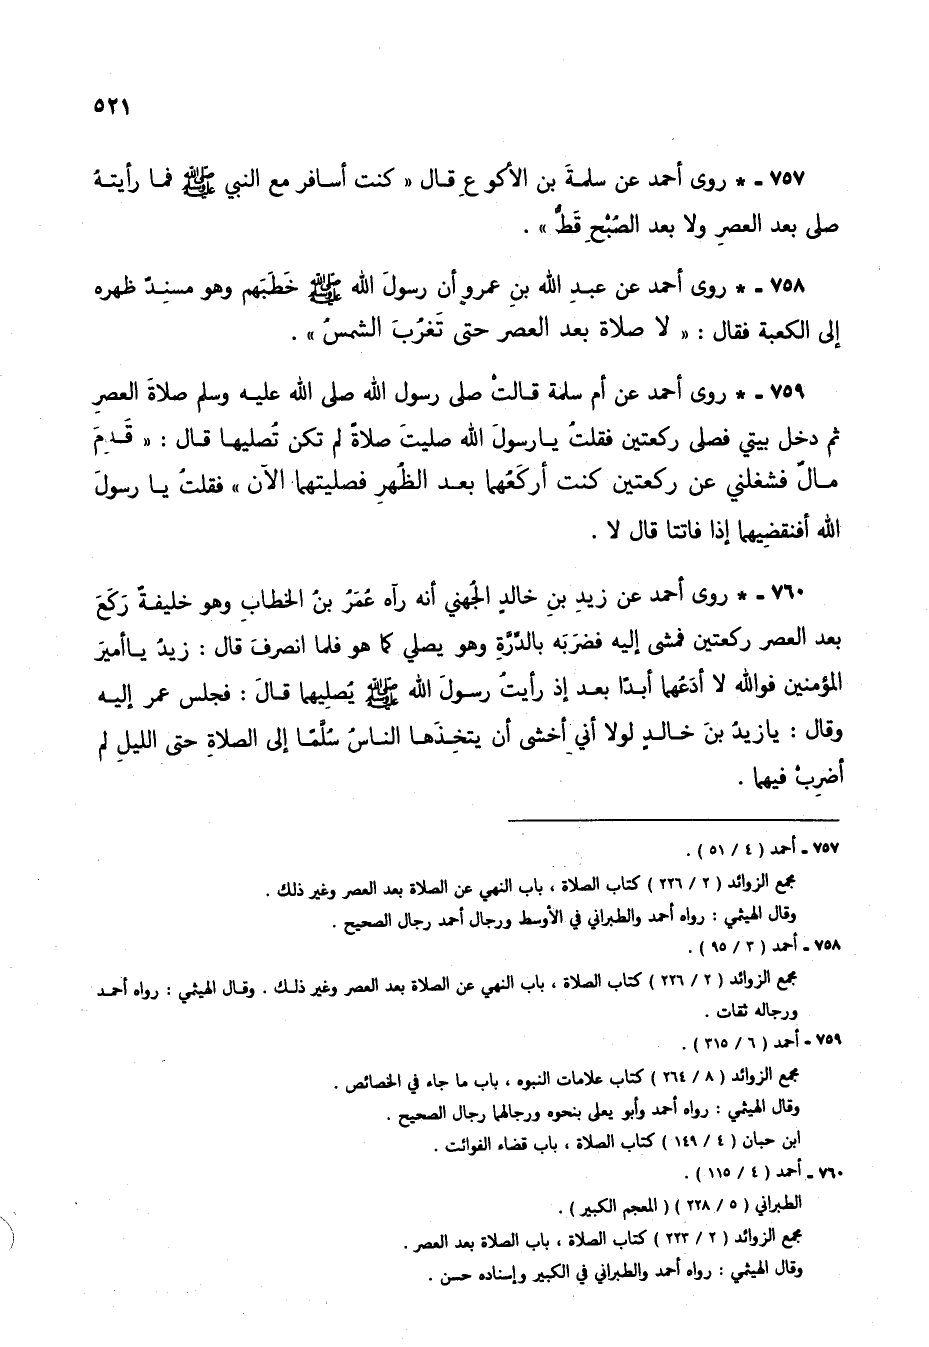 ٥٢١
٧٥٧ - * روى أحمد عن سلمةَ بن الأكوعِ قال « كنت أسافر مع النبي ﷺ فما رأيتهُ
صلى بعد العصرِ ولا بعد الصُبْحِ قَطُّ » .
٧٥٨ - * روى أحمد عن عبدِ الله بنِ عمروٍ أن رسولَ الله ﷺ خَطَبَهم وهو مسنِدٌ ظهره
إلى الكعبة فقال : « لا صلاة بعد العصر حتى تَغرُبَ الشمسُ » .
٧٥٩ - * روى أحمد عن أم سلمة قالتْ صلى رسول الله صلى الله عليه وسلم صلاةَ العصرِ
ثم دخل بيتي فصلى ركعتين فقلتُ يارسولَ الله صليتَ صلاةً لم تكن تُصليها قال : « قَدِمَ
مالٌ فشغلني عن ركعتين كنت أركَعُهما بعد الظُهرِ فصليتهما الآن » فقلتُ يا رسولَ
الله أفنقضِيهما إذا فاتتا قال لا .
٧٦٠ - * روى أحمد عن زيدِ بنِ خالدٍ الجُهني أنه رآه عُمَرُ بنُ الخطابِ وهو خليفةٌ رَكَعَ
بعد العصر ركعتين فمشى إليه فضرَبَه بالدَّرَّةِ وهو يصلي كما هو فلما انصرفَ قال : زيدُ ياأميرَ
المؤمنين فوالله لا أدَعُهما أبدًا بعد إذ رأيتُ رسولَ الله ﷺ يُصليها قالَ : فجلس عمر إليه
وقال : يازيدُ بنَ خالدٍ لولا أني أخشى أن يتخِذَها الناسُ سُلَّمًا إلى الصلاةِ حتى الليلِ لم
أضرِبْ فيهما .
٧٥٧ - أحمد ( ٤ / ٥١ ) .
مجمع الزوائد ( ٢ / ٢٢٦ ) كتاب الصلاة ، باب النهي عن الصلاة بعد العصر وغير ذلك .
وقال الهيثمي : رواه أحمد والطبراني في الأوسط ورجال أحمد رجال الصحيح .
٧٥٨ - أحمد ( ٢ / ٩٥ ) .
مجمع الزوائد ( ٢ / ٢٢٦ ) كتاب الصلاة ، باب النهي عن الصلاة بعد العصر وغير ذلك . وقال الهيثمي : رواه أحمد
ورجاله ثقات .
٧٥٩ - أحمد ( ٦ / ٣١٥ ) .
مجمع الزوائد ( ٨ / ٢٦٤ ) كتاب علامات النبوه ، باب ما جاء في الخصائص .
وقال الهيثمي : رواه أحمد وأبو يعلى بنحوه ورجالهما رجال الصحيح .
ابن حبان ( ٤ / ١٤٩ ) كتاب الصلاة ، باب قضاء الفوائت .
٧٦٠ - أحمد ( ٤ / ١١٥ ) .
الطبراني ( ٥ / ٢٢٨ ) ( المعجم الكبير ) .
مجمع الزوائد ( ٢ / ٢٢٣ ) كتاب الصلاة ، باب الصلاة بعد العصر .
وقال الهيثمي : رواه أحمد والطبراني في الكبير وإسناده حسن .